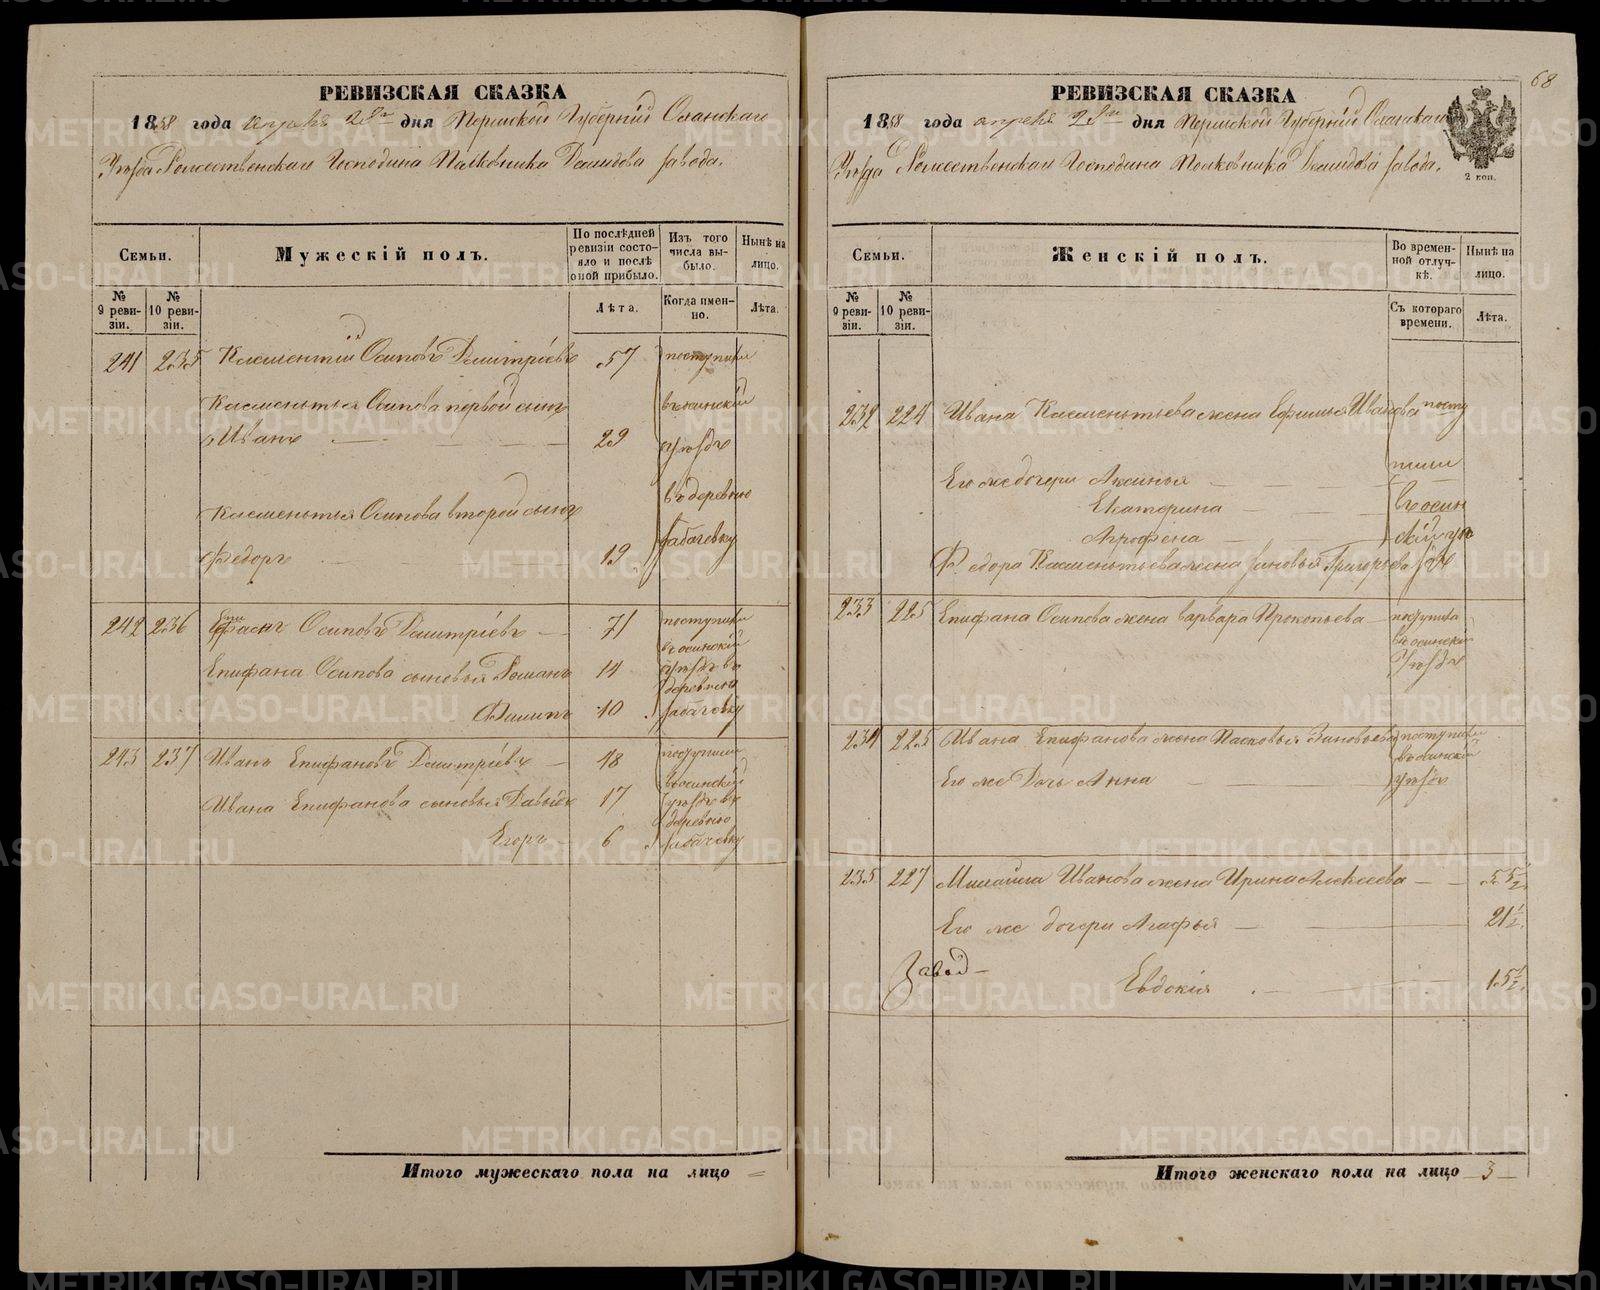 РЕВИЗСКАЯ СКАЗКА
1858 года апреля дня Пермской Губернiй Оханскаго
Уѣзда Рожественскаго Господина Полковника Демидова завода.
Семьи.
Мужескiй полъ.
По послѣдней ревизiи состояло и послѣ оной прибыло.
Изъ того числа выбыло.
Нынѣ на лицо.
№ 9 ревизiи.
№ 10 ревизiи.
Лѣта.
Когда именно.
Лѣта.
241 235 Клементiй Осиповъ Дмитрiевъ 57 поступили
Клементья Осипова первой сынъ въ осинскiй
Иванъ 29 уѣздъ
Клементья Осипова второй сынъ въ деревню
Федоръ 19
242 236 Осиповъ Дмитрiевъ 71 поступили
въ осинскiй
Епифана Осипова сыновья Романъ 14 уѣздъ въ
деревню
Филипъ 10
243 237 Иванъ Епифановъ Дмитрiевъ 48 поступили
въ осинскiй
Ивана Епифанова сыновья Давыдъ 17 уѣздъ въ
деревню
Егоръ 6
Итого мужескаго пола на лицо =
68
РЕВИЗСКАЯ СКАЗКА
1858 года апреля дня Пермской Губернiй Оханскаго
Уѣзда Рожественскаго Господина Полковника Демидова завода.
2 коп.
Семьи.
Женскiй полъ.
Во временной отлучкѣ.
Нынѣ на лицо.
№ 9 ревизiи.
№ 10 ревизiи.
Съ котораго времени.
Лѣта.
232 224 Ивана Клементьева жена Ефимья Иванова посту
пили
Его же дочери Аксинья
Екатерина въ осин
Агрофена скiй уѣ
Федора Клементьева жена Зановья Григорьева здъ
233 225 Епифана Осипова жена варвара Прокопьева поступила
въ осинскiй
уѣздъ
234 226 Ивана Епифанова жена Пасковья Зиновьева поступили
въ осинскiй
Его же Дочь Анна уѣздъ
235 227 Михайла Иванова жена Ирина Алексеева 55½
Его же дочери Агафья 21½
Завод
Евдокiя 15½
Итого женскаго пола на лицо 3
METRIKI.GASO-URAL.RU